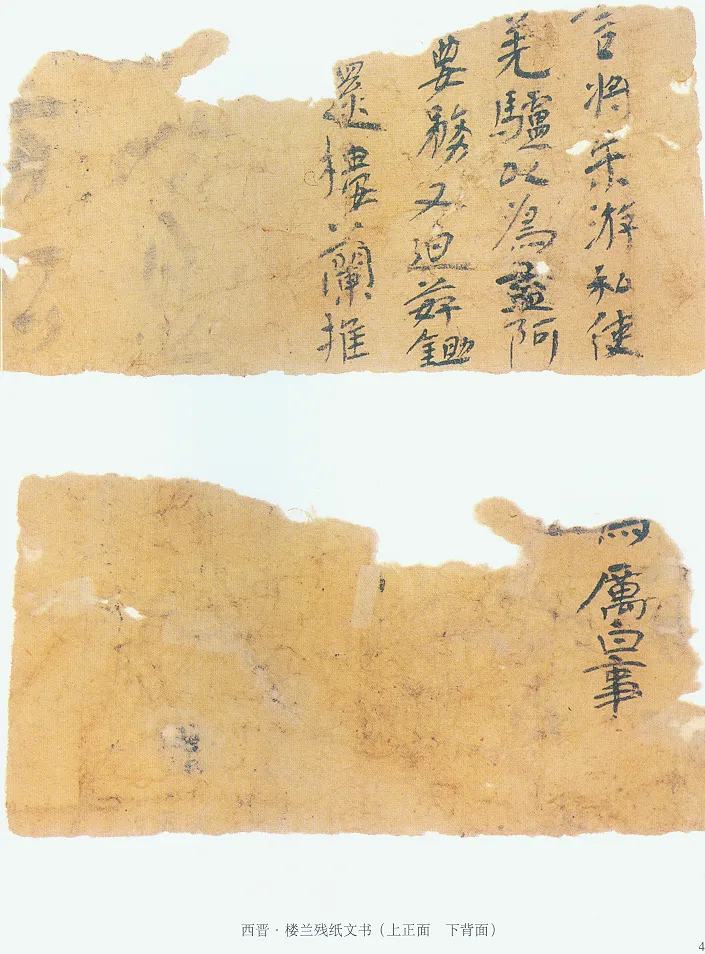 言將朱游私使
羌驢以為盡阿
要務又迫薪鋤
還樓蘭推
厲白事
西晋·楼兰残纸文书（上正面　下背面）
4